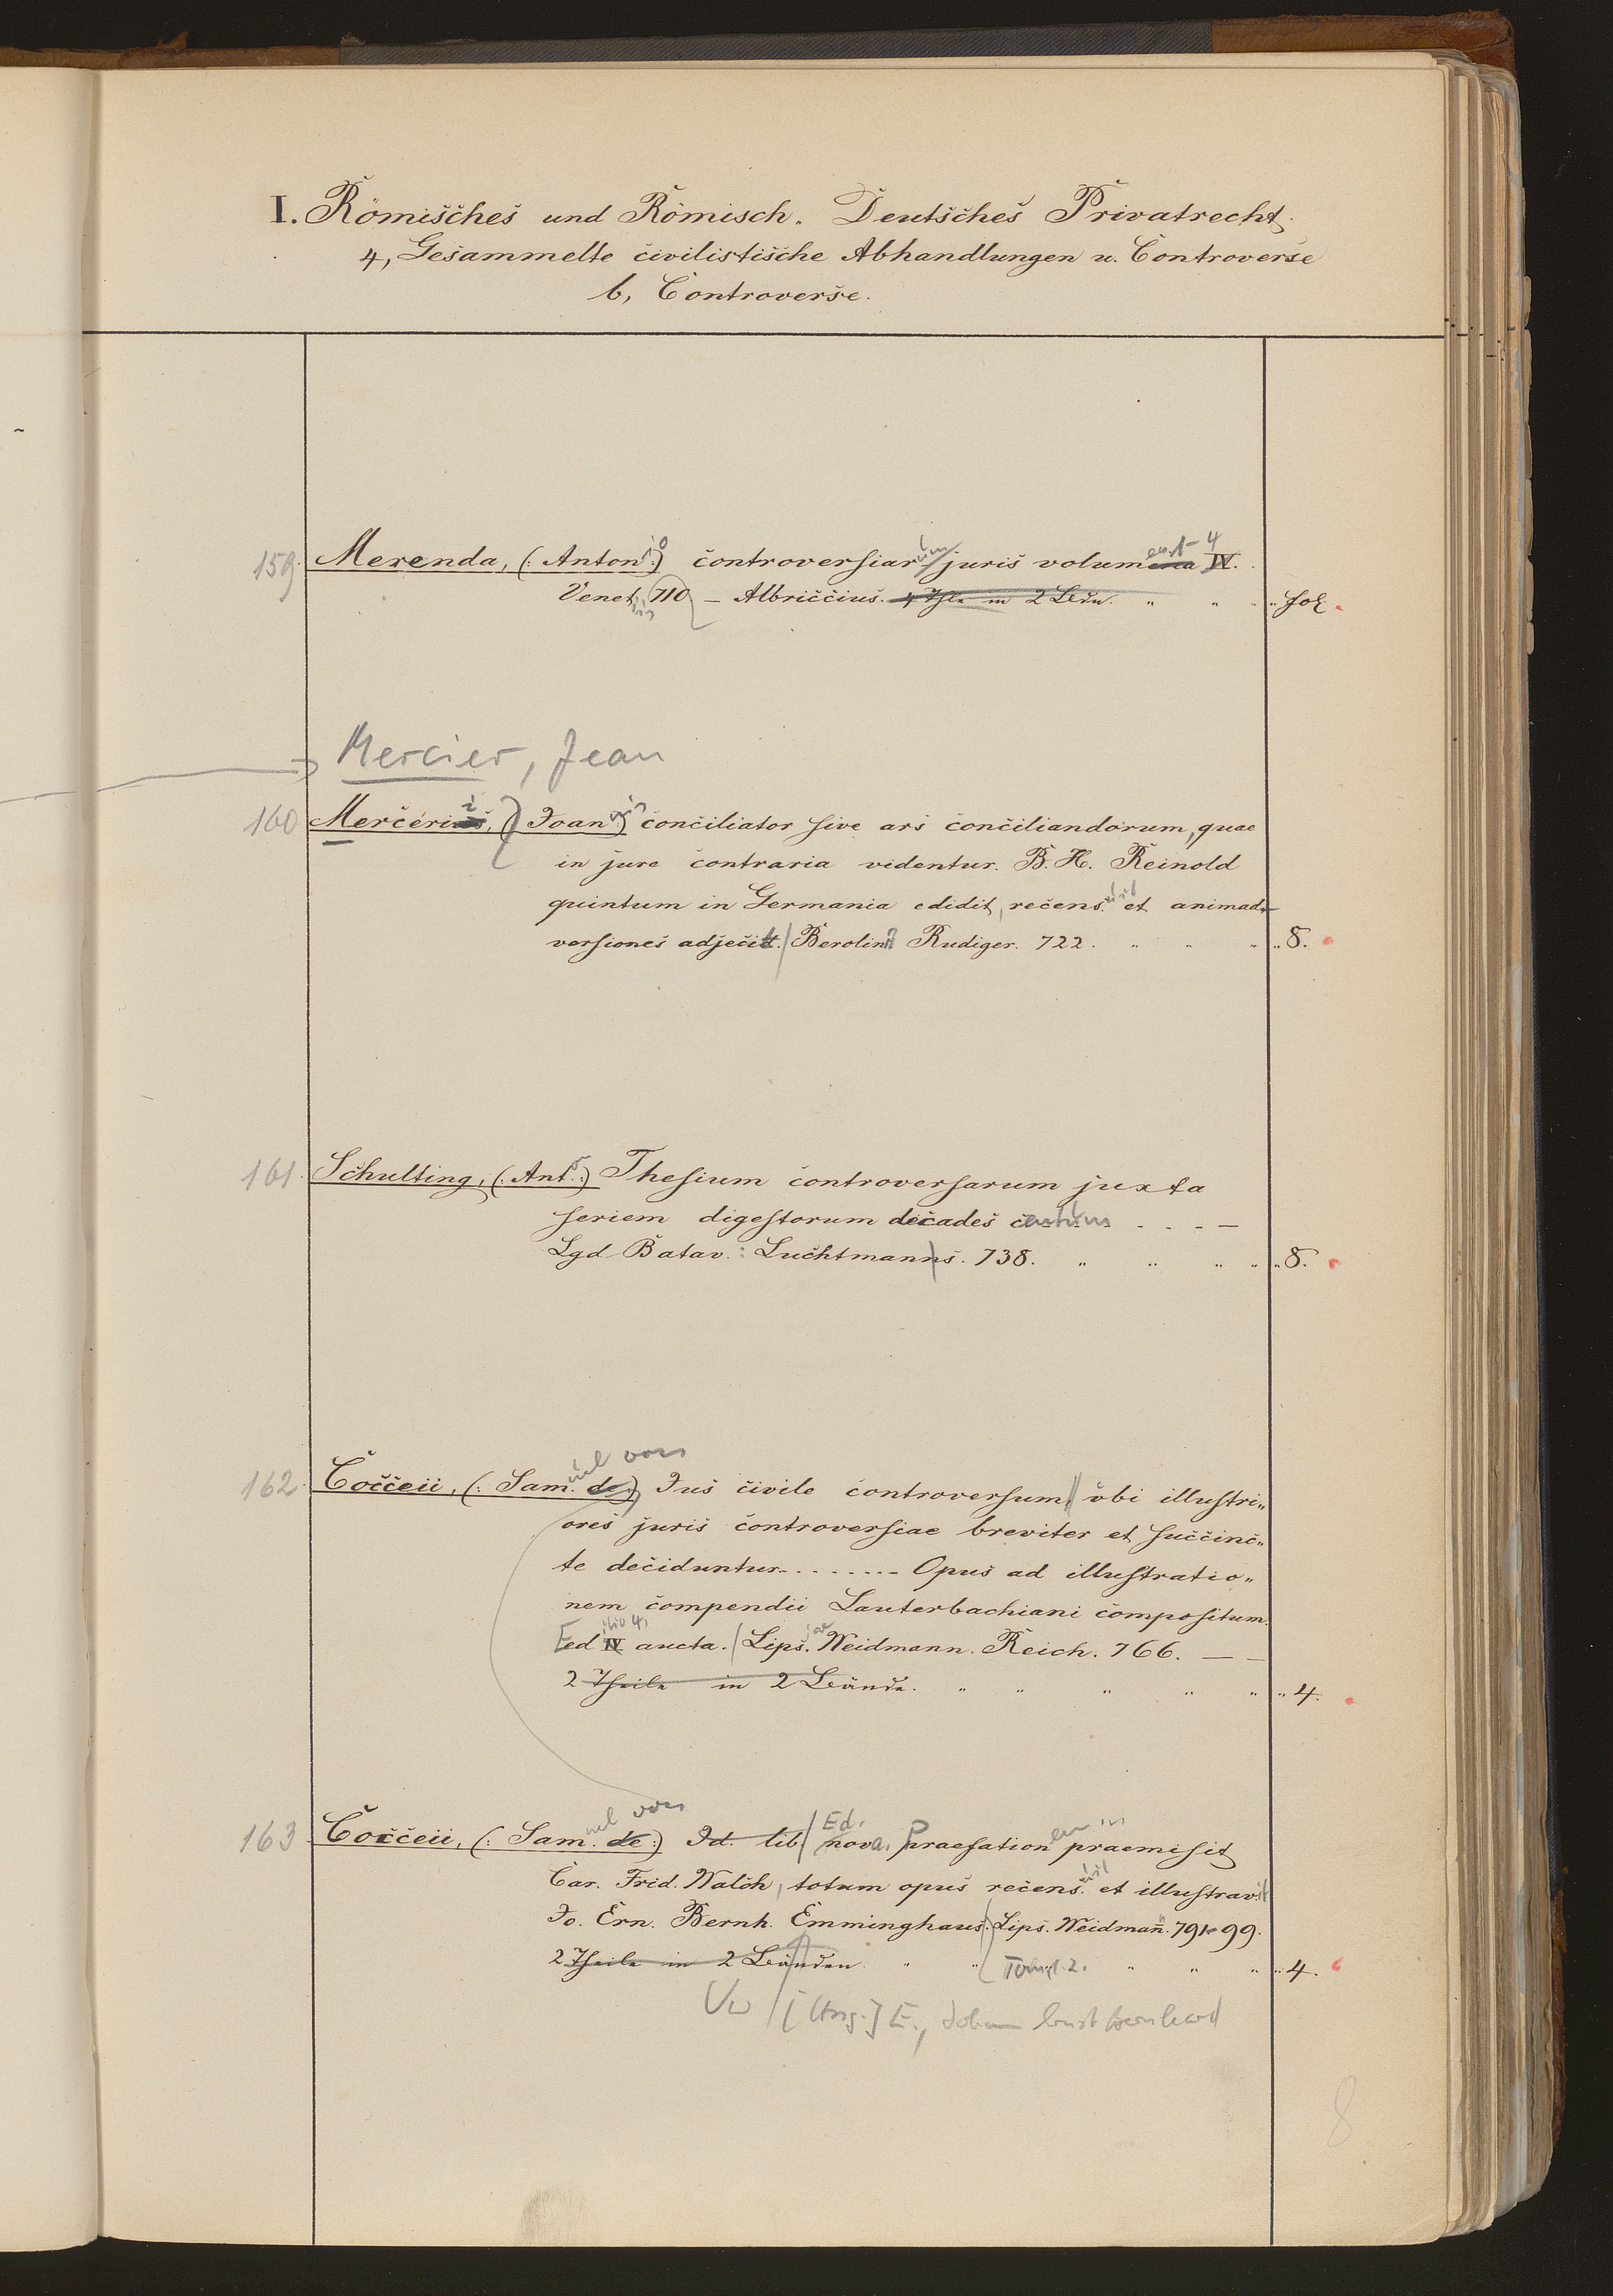 I. Römisches und Römisch. Deutsches Privatrecht.
4, Gesammelte civilistische Abhandlungen u. Controverse
b, Controverse.
159 Merenda, (: Anton :) controversiarum juris volumina IV.
Venet. 710 – Albriccius. 4 Thle in 2 Bdn. " " " fol.
Mercier, Jean
160 Mercerius, (: Joan :) conciliator sive ars conciliandorum, quae
in jure contraria videntur. B. H. Reinold
quintum in Germania edidit, recens. et animad-
versiones adjecit. Berolini Rudiger. 722. " " " 8.
161 Schulting, (: Ant. :) Thesium controversarum juxta
seriem digestorum decades centum . . . –
Lgd Batav. : Luchtmanns. 738. " " " " 8.
162 Cocceii, (: Sam. de :) Jus civile controversum, ubi illustri"
ores juris controversiae breviter et succinc"
te deciduntur. . . . . . . . Opus ad illustratio"
nem compendii Lauterbachiani compositum.
ed IV aucta. Lips. Weidmann. Reich. 766. – –
2 Theile in 2 Bände. " " " " " 4.
163 Cocceii, (: Sam. de :) Id. lib. Ed. nova. praefationem praemisit
Car. Frid. Walch, totum opus recens. et illustravit
Jo. Ern. Bernh. Emminghaus. Lips. Weidmann. 791–99.
2 Theile in 2 Bänden " " Tom. 1. 2. " " " 4.
Vw [Hrsg.] E., Johann Ernst Bernhard
8